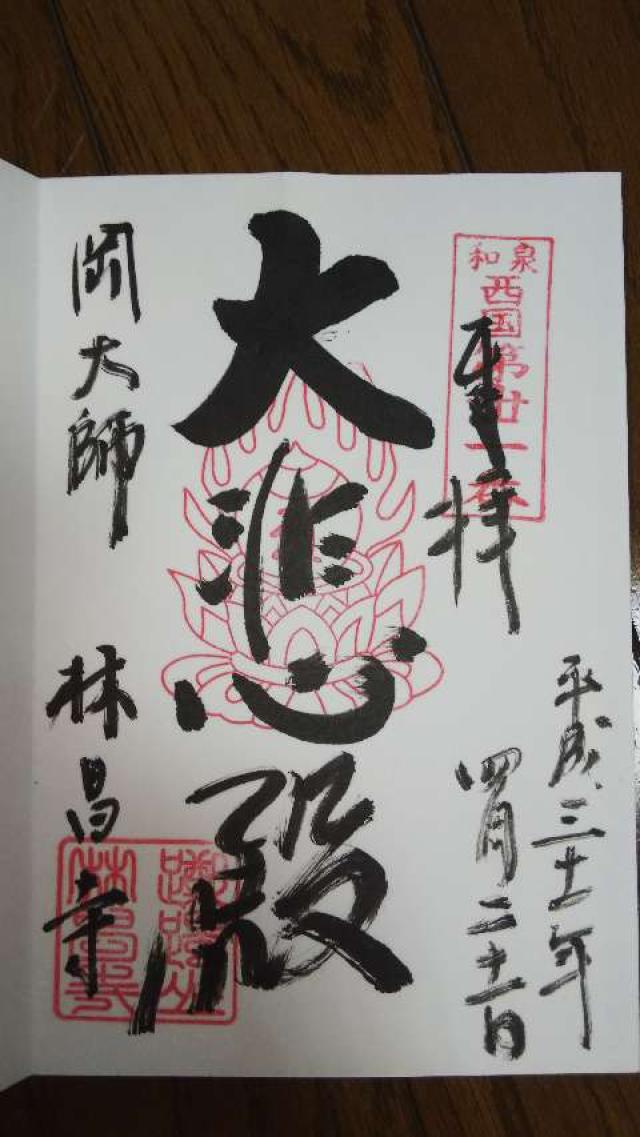 和泉
西国第廿一番
奉拝
平成三十一年
四月二十一日
大悲殿
岡大師 林昌寺
躑躅山
林昌寺